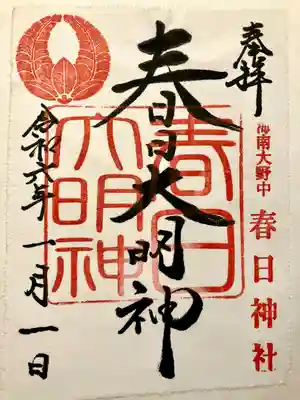 奉拝
海南大野中
春日神社
春日大明神
春日
大明神
令和六年一月一日